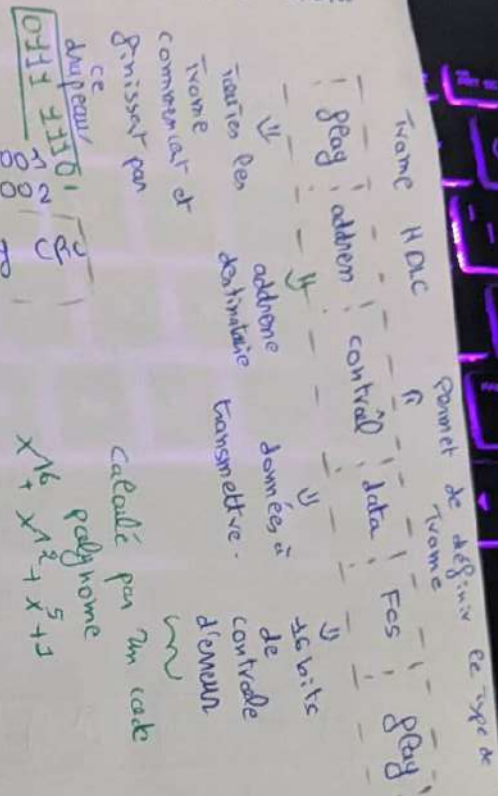 Trame HDLC
Permet de définir le type de
trame
flag address contrôl data FCS flag
toutes les
trame
commencat et
finissat par
ce
drapeau
0111 1110
addresse
destinataire
données à
transmettre.
16 bits
de
controle
d'erreur
Calculé par un code
polynome
x16 + x12 + x5 + 1
001
002
CRC